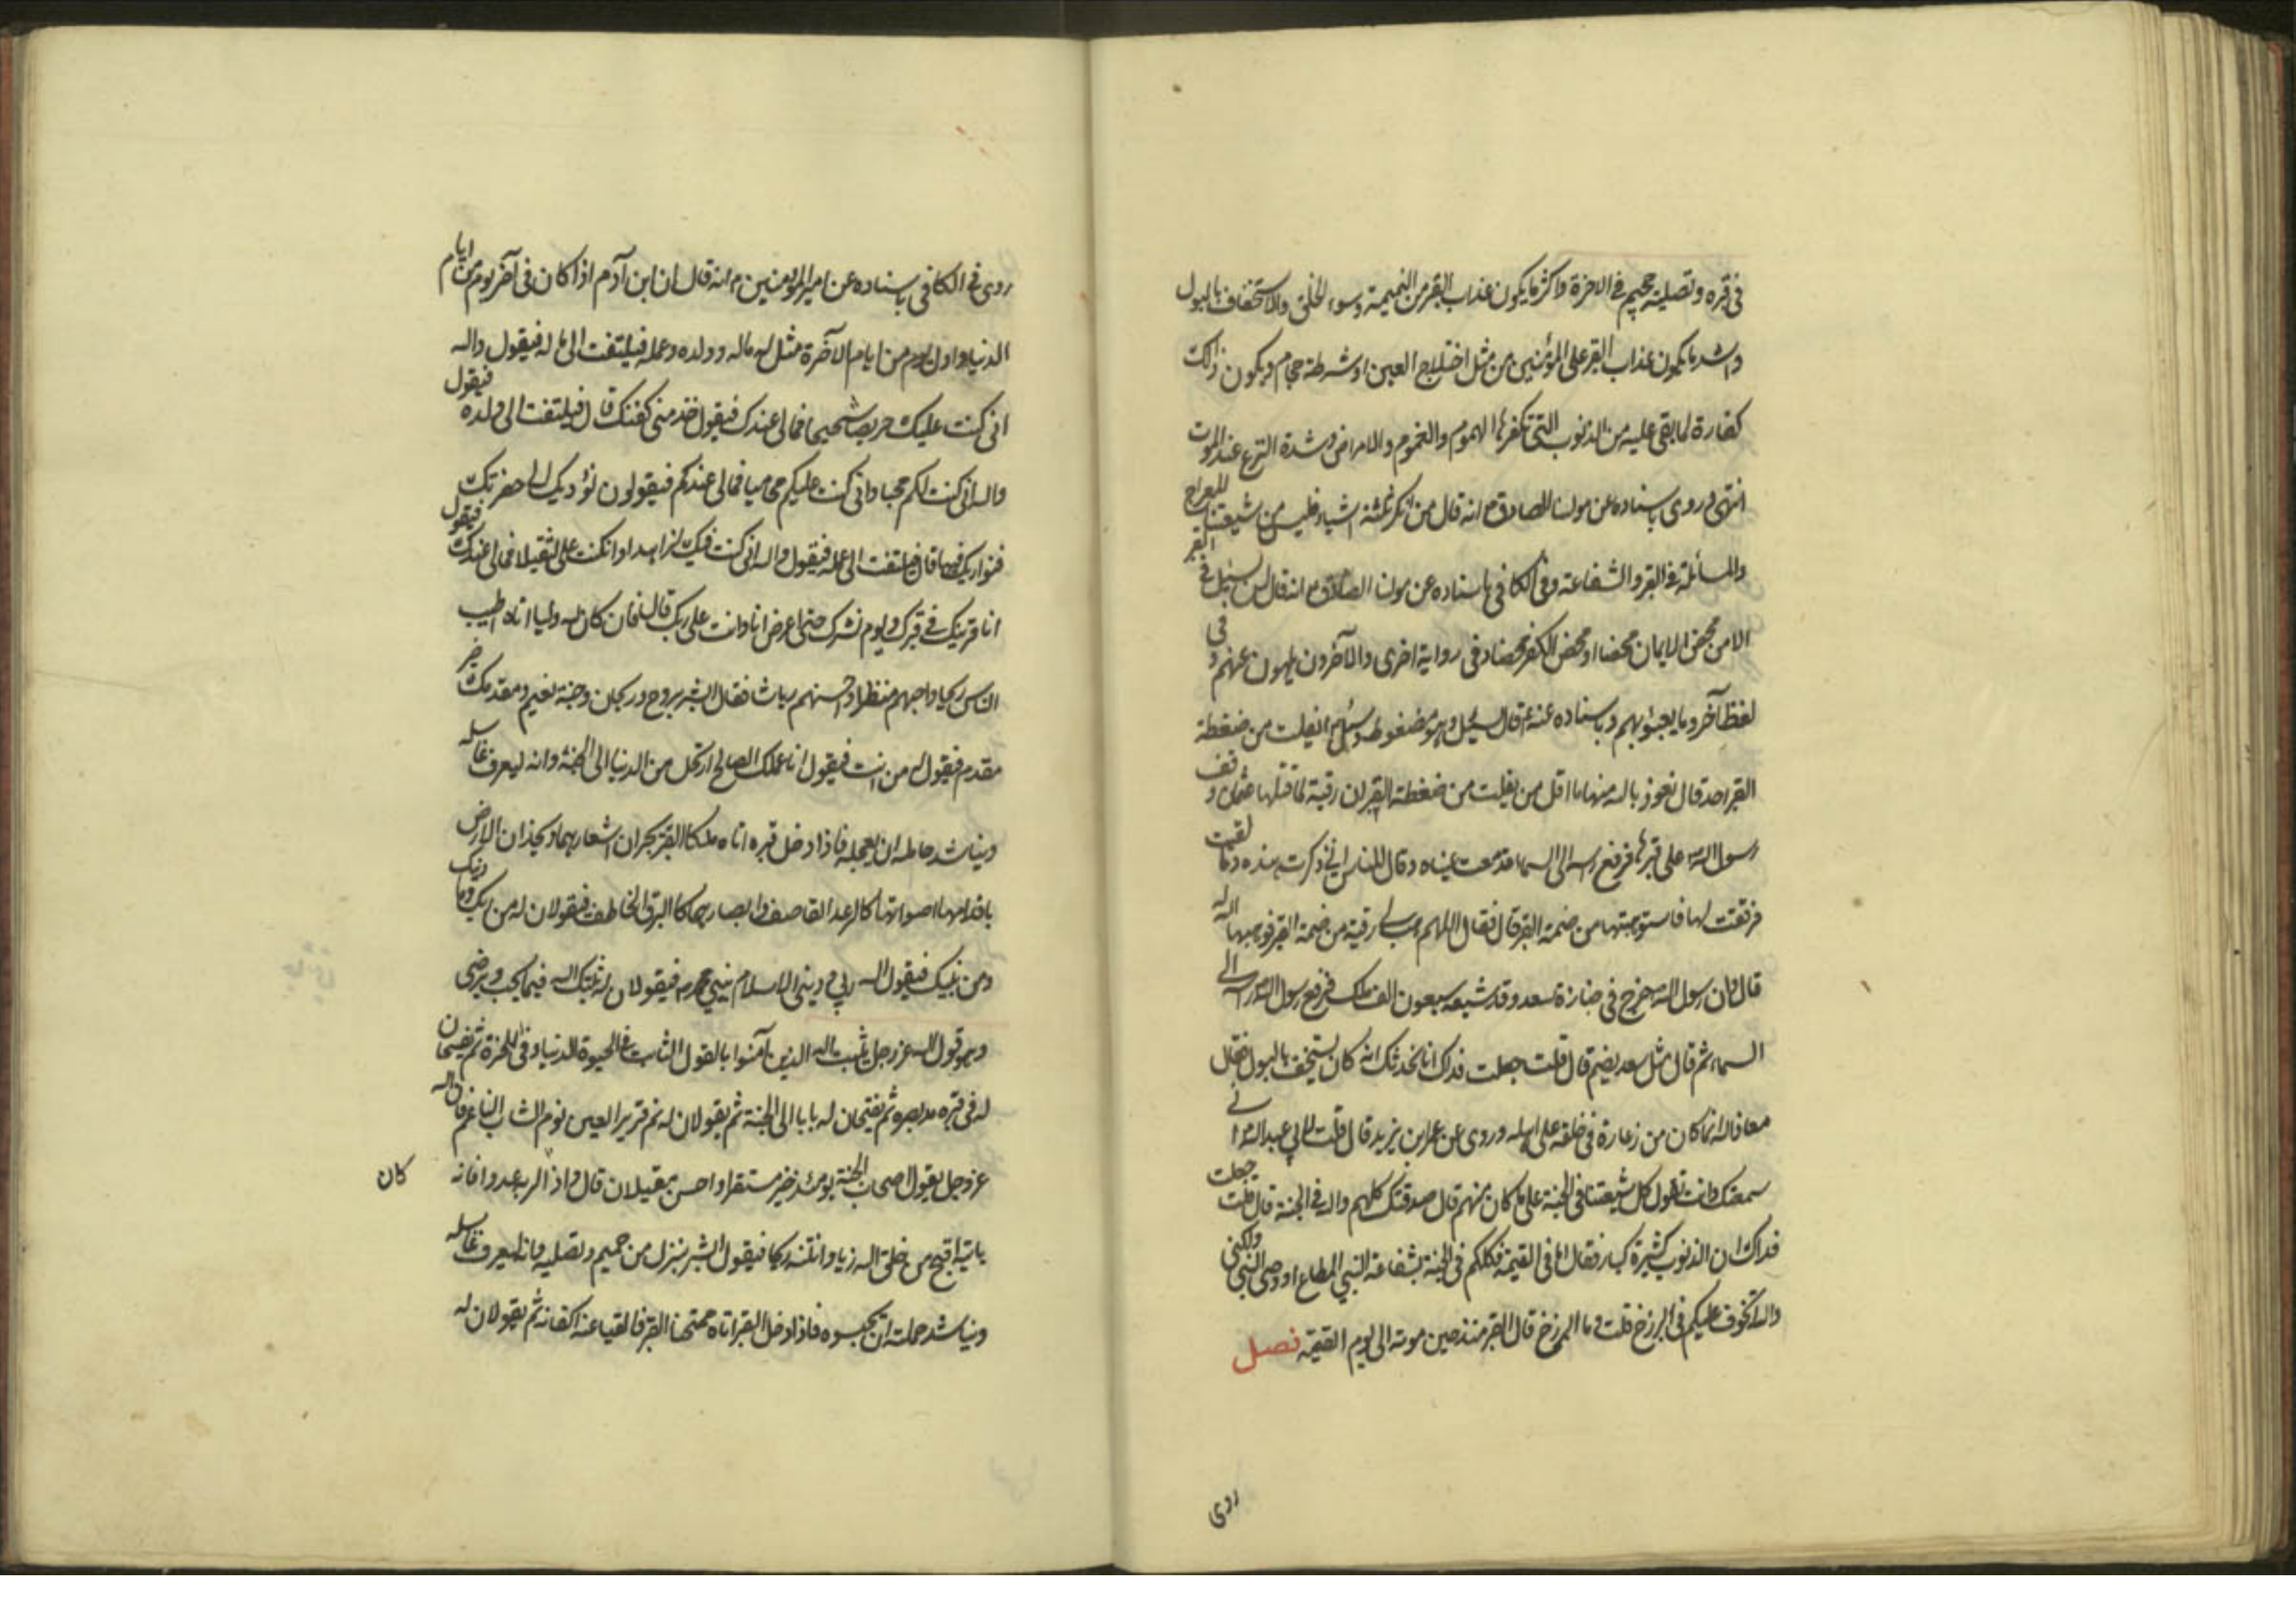 فى قبره وتصلية جحيم فى الاخرة واكثر ما يكون عذاب القبر من النميمة وسوء الخلق والاستخفاف بالبول
واشد ما يكون عذاب القبر على المؤمنين من مثل اختلاج العين او شرطة حجام ويكون ذلك
كفارة لما بقى عليه من الذنوب التى تكفرها الهموم والغموم والامراض وشدة النزع عند الموت
انتهى وروى باسناده عن مولنا الصادق ع انه قال من انكر ثلثة اشياء فليس من شيعتنا المعراج
والمسائلة فى القبر والشفاعة وفى الكافى باسناده عن مولنا الصادق ع انه قال لن يسئل فى القبر
الا من محض الايمان محضا او محض الكفر محضا وفى رواية اخرى والآخرون يلهون عنهم وفى
لفظ آخر وما يعبؤ بهم وباسناده عنه ع قال يسئل وهو مضغوط وسئل ايفلت من ضغطة
القبر احد قال نعوذ بالله منها ما اقل من يفلت من ضغطة القبر ان رقية لما قتلها عثمان وقف
رسول الله على قبرها فرفع راسه الى السماء فدمعت عيناه وقال للناس انى ذكرت هذه وما لقيت
فرققت لها فاستوهبتها من ضمة القبر قال فقال اللهم هب لى رقية من ضمة القبر فوهبها الله له
قال وان رسول الله خرج فى جنازة سعد وقد شيعه سبعون الف ملك فرفع رسول الله راسه الى
السماء ثم قال مثل سعد يضم قال قلت جعلت فداك انا نحدث انه كان يستخف بالبول فقال
معاذ الله انما كان من زعارة فى خلقه على اهله وروى عن عمر بن يزيد قال قلت لابى عبد الله انى
سمعتك وانت تقول كل شيعتنا فى الجنة على ما كان منهم قال صدقتك كلهم والله فى الجنة قال قلت جعلت
فداك ان الذنوب كثيرة كبار فقال اما فى القيمة فكلكم فى الجنة بشفاعة النبى المطاع او وصى النبى ولكنى
والله اتخوف عليكم فى البرزخ قلت وما البرزخ قال القبر منذ حين موته الى يوم القيمة فصل
روى
روى فى الكافى باسناده عن امير المؤمنين ع انه قال ان ابن آدم اذا كان فى آخر يوم من ايام
الدنيا واول يوم من ايام الآخرة مثل له ماله وولده وعمله فيلتفت الى ماله فيقول والله
انى كنت عليك حريصا شحيحا فمالى عندك فيقول خذ منى كفنك قال فيلتفت الى ولده فيقول
والله انى كنت لكم محبا وانى كنت عليكم محاميا فمالى عندكم فيقولون نؤديك الى حفرتك
فنواريك فيها قال فيلتفت الى عمله فيقول والله انى كنت فيك لزاهدا وان كنت على لثقيلا فمالى عندك فيقول
انا قرينك فى قبرك ويوم نشرك حتى اعرض انا وانت على ربك قال فان كان لله وليا اتاه اطيب
الناس ريحا واجبهم منظرا واحسنهم رياشا فقال ابشر بروح وريحان وجنة نعيم ومقدمك خير
مقدم فيقول له من انت فيقول انا عملك الصالح ارتحل من الدنيا الى الجنة وانه ليعرف غاسله
ويناشد حامله ان يعجله فاذا دخل قبره اتاه ملكا القبر يجران اشعارهما ويخدان الارض
باقدامهما اصواتهما كالرعد القاصف وابصارهما كالبرق الخاطف فيقولان له من ربك وما دينك
ومن نبيك فيقول الله ربى ودينى الاسلام ونبيى محمد ص فيقولان له ثبتك الله فيما يحب ويرضى
وهو قول الله عز وجل يثبت الله الذين آمنوا بالقول الثابت فى الحيوة الدنيا وفى الاخرة ثم يفسحان
له فى قبره مد بصره ثم يفتحان له بابا الى الجنة ثم يقولان له نم قرير العين نوم الشاب الناعم فان الله
عز وجل يقول اصحاب الجنة يومئذ خير مستقرا واحسن مقيلا قال واذا كان لربه عدوا فانه
ياتيه اقبح من خلق الله زيا وانتنه ريحا فيقول ابشر بنزل من حميم وتصلية وانه ليعرف غاسله
ويناشد حملته ان يحبسوه فاذا دخل القبر اتاه ممتحنا القبر فالقيا عنه اكفانه ثم يقولان له